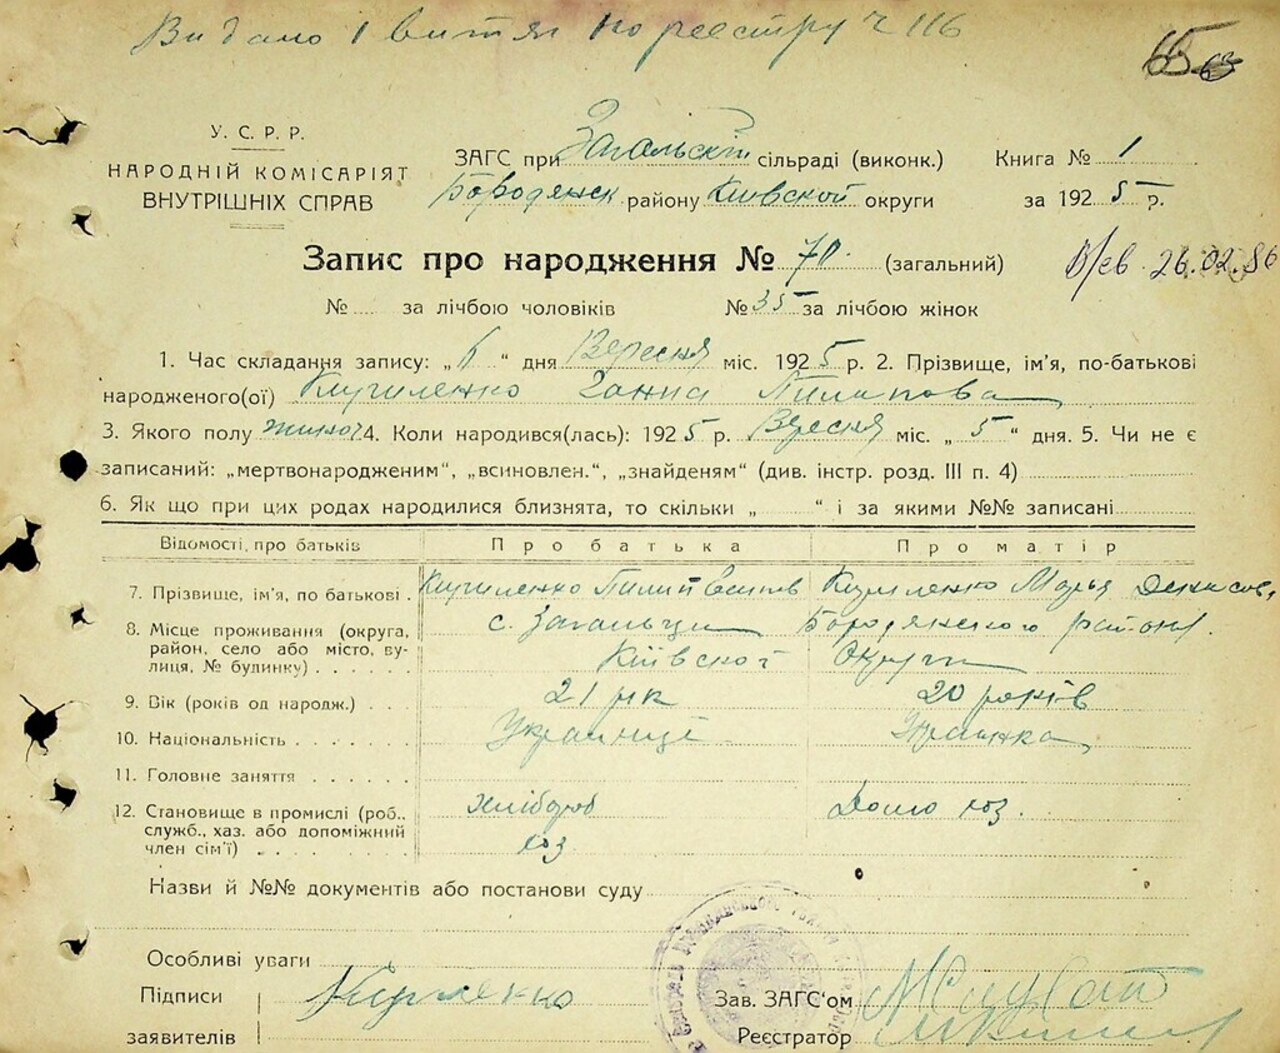 Видано 1 витяг по реєстру ч 116
65 63
У. С. Р. Р.
НАРОДНІЙ КОМІСАРІЯТ
ВНУТРІШНІХ СПРАВ
ЗАГС при Загальскій сільраді (виконк.)
Бородянск району Київской округи
Книга № 1
за 1925 р.
Запис про народження № 70. (загальний)
26.02.86
№ .... за лічбою чоловіків № 35 за лічбою жінок
1. Час складання запису: „ 6 “ дня Вересня міс. 1925 р. 2. Прізвище, ім'я, по-батькові
народженого(ої) Ганна Пилипова
3. Якого полу жіноч. 4. Коли народився(лась): 1925 р. Вересня міс. „ 5 “ дня. 5. Чи не є
записаний: „мертвонародженим“, „всиновлен.“, „знайденям“ (див. інстр. розд. III п. 4)
6. Як що при цих родах народилися близнята, то скільки „ “ і за якими №№ записані
Відомості про батьків Про батька Про матір
7. Прізвище, ім'я, по батькові . Пилип Марья Денисов.
8. Місце проживання (округа, район, село або місто, вулиця, № будинку) . . . . . с. Загальці Бородянского району.
Київскої Округи
9. Вік (років од народж.) . . . 21 рік 20 років
10. Національність . . . . . . . Українці Українка
11. Головне заняття . . . . . .
12. Становище в промислі (роб., служб., хаз. або допоміжний член сім'ї) . . . . . . . . хлібороб хоз. Домо хоз.
Назви й №№ документів або постанови суду
Особливі уваги
Підписи
заявителів
Зав. ЗАГС'ом
Реєстратор